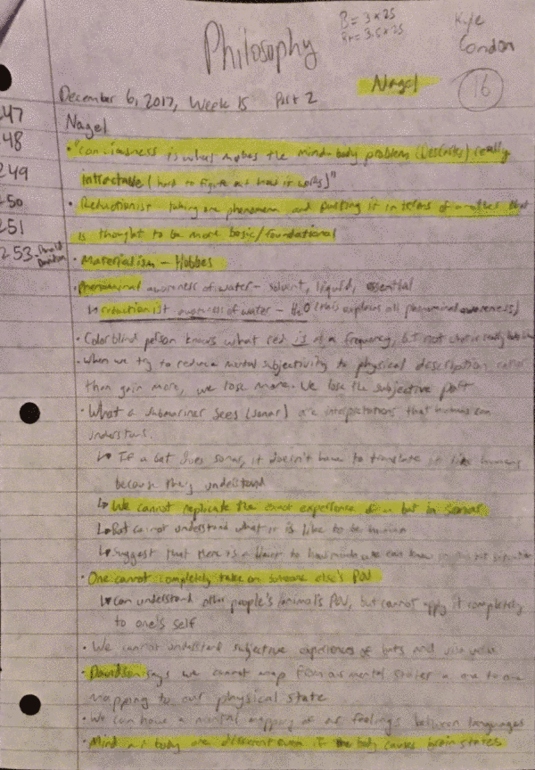 Philosophy
B = 3 x 25
Kyle
Condon
Nagel
16
December 6, 2017, Week 15 Part 2
47
Nagel
48
• "Conciousness is what makes the mind-body problem (Descartes) really
249
intractable (hard to figure out how it works)"
250
• Reductionist taking one phenomena and putting it in terms of another that
251
is thought to be more basic/foundational
253
• Materialism - Hobbes
• Phenomenal awareness of water - solvent, liquid, essential
↳ reductionist awareness of water - H₂O (this explains all phenomenal awareness)
• Color blind person knows what red is at a frequency, but not what it really
• When we try to reduce mental subjectivity to physical description rather
than gain more, we lose more. We lose the subjective part
• What a submariner sees (sonar) are interpretations that humans can
understand.
↳ If a bat does sonar, it doesn't have to translate it like humans
because they understand
↳ We cannot replicate the exact experience of a bat in sonar
↳ Bat cannot understand what it is like to be human
↳ Suggest that there is a limit to how much we can know
• One cannot completely take on someone else's POV
↳ Can understand other people's/animal's POV, but cannot apply it completely
to one's self
• We cannot understand subjective experiences of bats and vice versa
• Davidson says we cannot map from our mental states a one to one
mapping to our physical state
• We can have a mapping of our feelings between languages
• Mind and body are different even if the body causes brain states